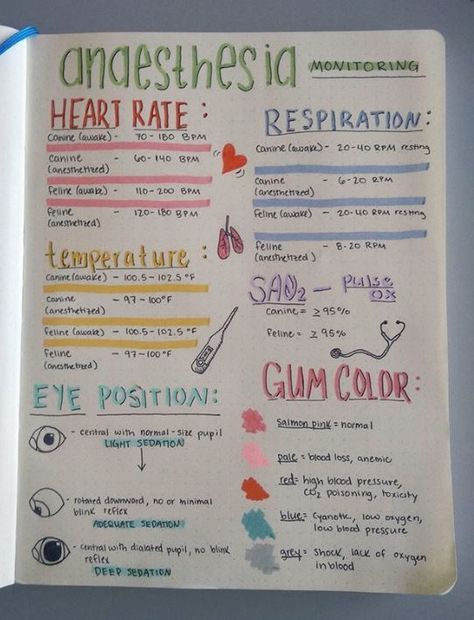 anaesthesia MONITORING
HEART RATE:
Canine (awake) - 70-180 BPM
Canine (anesthetized) - 60-140 BPM
Feline (awake) - 110-200 BPM
Feline (anesthetized) - 120-180 BPM
RESPIRATION:
Canine (awake) - 20-40 RPM resting
Canine (anesthetized) - 6-20 RPM
Feline (awake) - 20-40 RPM resting
Feline (anesthetized) - 8-20 RPM
temperature:
Canine (awake) - 100.5-102.5 °F
Canine (anesthetized) - 97-100°F
Feline (awake) - 100.5-102.5 °F
Feline (anesthetized) - 97-100°F
SAO2 - Pulse OX
canine = ≥ 95%
feline = ≥ 95%
EYE POSITION:
- central with normal-size pupil
LIGHT SEDATION
- rotated downward, no or minimal
blink reflex
ADEQUATE SEDATION
- central with dialated pupil, no blink
reflex
DEEP SEDATION
GUM COLOR:
salmon pink = normal
pale = blood loss, anemic
red = high blood pressure,
CO2 poisoning, toxicity
blue = cyanotic, low oxygen,
low blood pressure
grey = shock, lack of oxygen
in blood